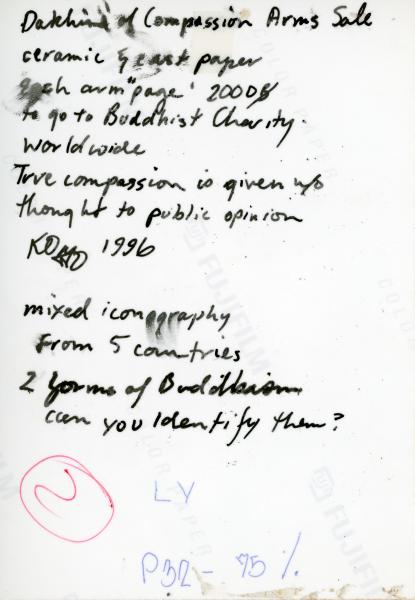 Dakhini of Compassion Arms Sale
ceramic & cast paper
Each arm "page" 2000$
to go to Buddhist Charity.
worldwide
True compassion is given w/o
thought to public opinion
1996
mixed iconography
From 5 countries
2 forms of Buddhism
can you identify them?
2
LY
P32 - 75%
FUJIFILM
FUJIFILM